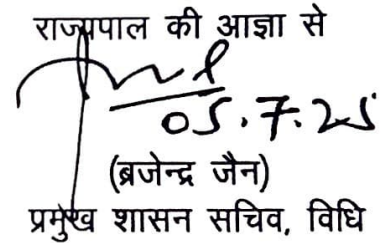 राज्यपाल की आज्ञा से
05.7.25
(ब्रजेन्द्र जैन)
प्रमुख शासन सचिव, विधि